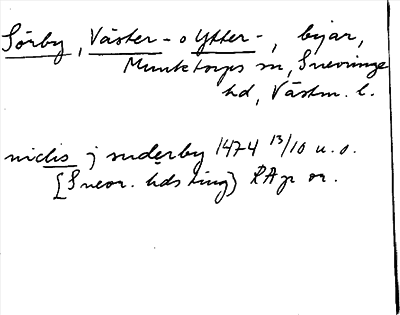 Sörby, Väster- o Ytter-, byar,
Munktorps sn, Snevringe
hd, Västm. l.
niclis j suderby 1474 13/10 u.o.
[Snevr. hds ting] RAp or.